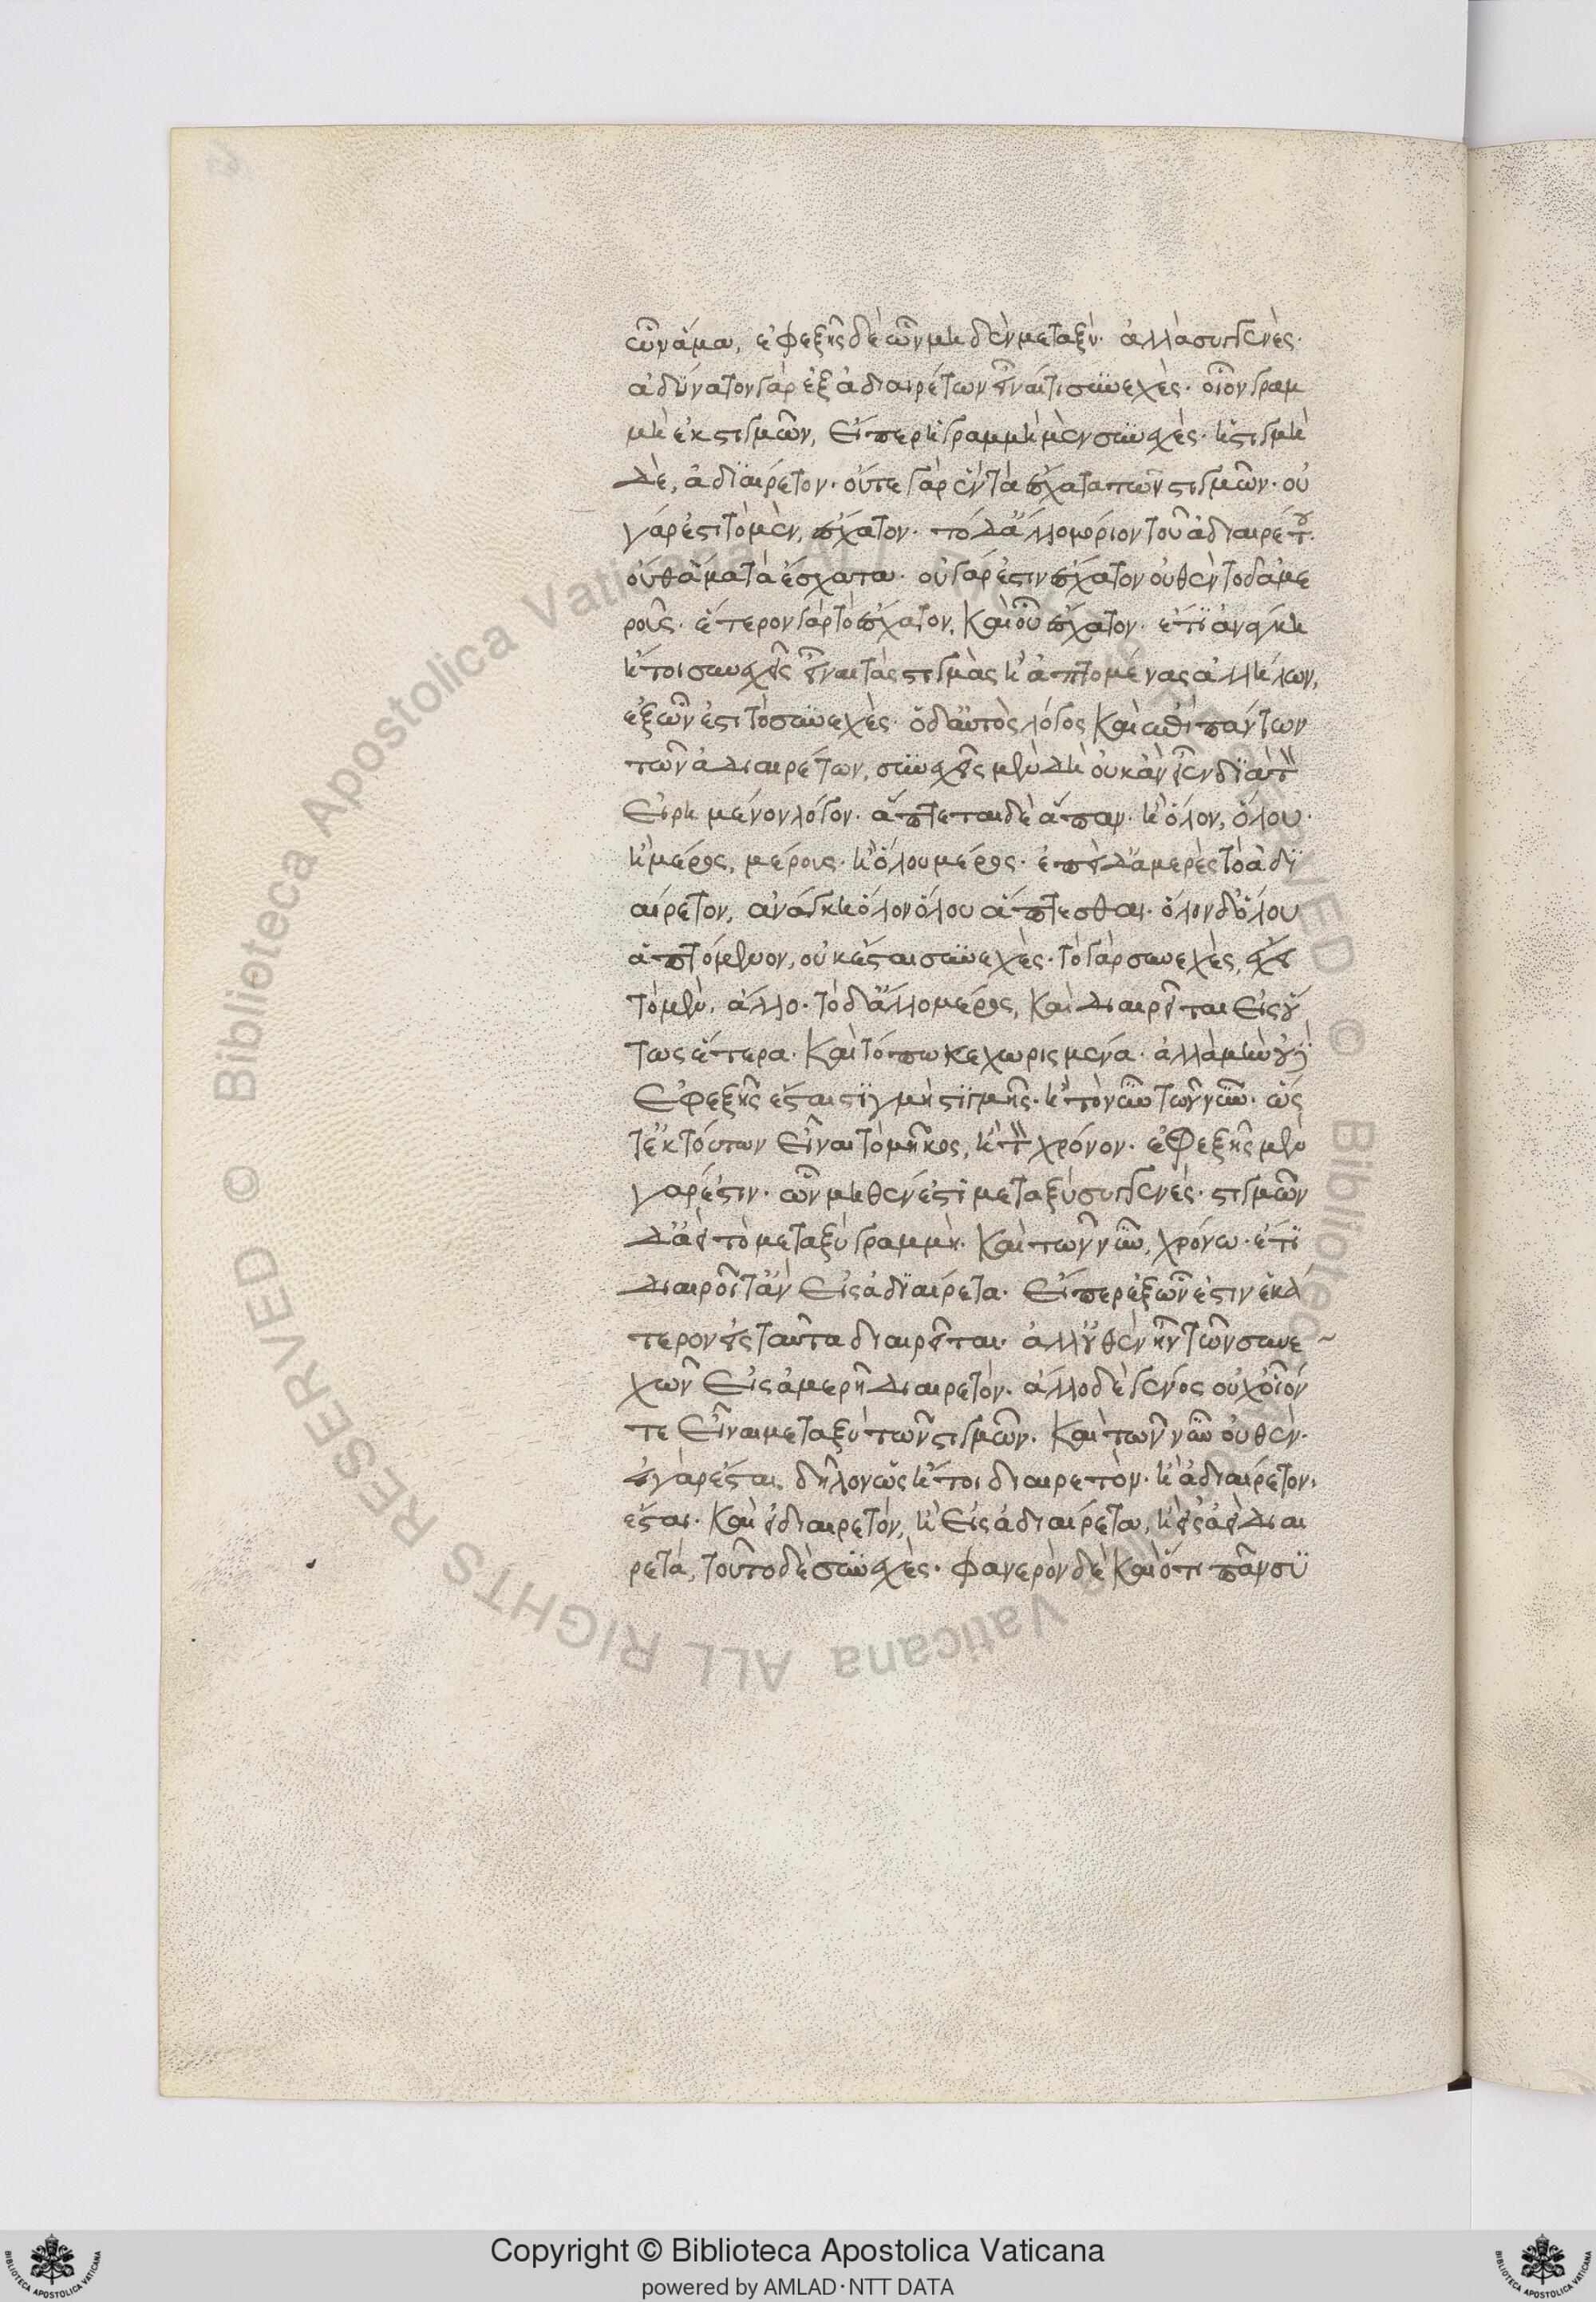 ὧν ἅμα, ἐφεξῆς δὲ ὧν μηδὲν μεταξὺ ἀλλὰ συγγενές·
ἀδύνατον γὰρ ἐξ ἀδιαιρέτων εἶναί τι συνεχὲς· οἷον γραμ
μὴ ἐκ στιγμῶν, εἴπερ ἡ γραμμὴ μὲν συνεχὲς· ἡ στιγμὴ
δὲ, ἀδιαίρετον· οὔτε γὰρ ἓν τὰ ἔσχατα τῶν στιγμῶν· οὐ
γάρ ἐστι τὸ μὲν, ἔσχατον· τὸ δ' ἄλλο μόριον τοῦ ἀδιαιρέτου·
οὔθ' ἅμα τὰ ἔσχατα· οὐ γάρ ἐστιν ἔσχατον οὐθὲν τοῦ ἀμε
ροῦς· ἕτερον γὰρ τὸ ἔσχατον, καὶ οὗ ἔσχατον· ἔτι ἀνάγκη
ἤτοι συνεχεῖς εἶναι τὰς στιγμὰς ἢ ἁπτομένας ἀλλήλων,
ἐξ ὧν ἐστι τὸ συνεχές· ὁ δ' αὐτὸς λόγος καὶ ἐπὶ πάντων
τῶν ἀδιαιρέτων, συνεχεῖς μὲν δὴ οὐκ ἂν εἶεν διὰ τὸν
εἰρημένον λόγον· ἅπτεται δὲ ἅπαν· ἢ ὅλον, ὅλου·
ἢ μέρος, μέρους· ἢ ὅλου μέρος· ἐπεὶ δ' ἀμερὲς τὸ ἀδι
αίρετον, ἀνάγκη ὅλον ὅλου ἅπτεσθαι· ὅλον δ' ὅλου
ἁπτόμενον, οὐκ ἔσται συνεχὲς· τὸ γὰρ συνεχὲς, ἔχει
τὸ μὲν, ἄλλο· τὸ δ' ἄλλο μέρος, καὶ διαιρεῖται εἰς οὕ
τως ἕτερα· καὶ τόπῳ κεχωρισμένα· ἀλλὰ μὴν οὐδὲ
ἐφεξῆς ἔσται στιγμὴ στιγμῆς· ἢ τὸ νῦν τῶν νῦν· ὥς
τ' ἐκ τούτων εἶναι τὸ μῆκος, ἢ τὸν χρόνον· ἐφεξῆς μὲν
γάρ ἐστιν· ὧν μηθέν ἐστι μεταξὺ συγγενές· στιγμῶν
δ' ἀεὶ τὸ μεταξὺ γραμμὴ· καὶ τῶν νῦν, χρόνος· ἔτι
διαιροῖτ' ἂν εἰς ἀδιαίρετα· εἴπερ ἐξ ὧν ἐστιν ἑκά
τερον εἰς ταῦτα διαιρεῖται· ἀλλ' οὐθὲν ἦν τῶν συνε
χῶν εἰς ἀμερῆ διαιρετόν· ἄλλο δὲ γένος οὐχ οἷόν
τε εἶναι μεταξὺ τῶν στιγμῶν· καὶ τῶν νῦν οὐθέν·
εἰ γὰρ ἔσται, δῆλον ὡς ἤτοι διαιρετὸν· ἢ ἀδιαίρετον,
ἔσται· καὶ εἰ διαιρετόν, ἢ εἰς ἀδιαίρετα, ἢ εἰς ἀεὶ διαι
ρετά, τοῦτο δὲ συνεχὲς· φανερὸν δὲ καὶ ὅτι πᾶν συ
Copyright © Biblioteca Apostolica Vaticana
powered by AMLAD·NTT DATA